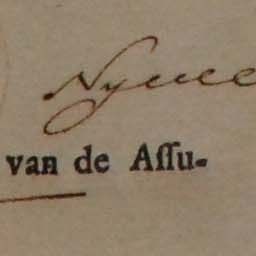 Nyme
van de Aſſu-